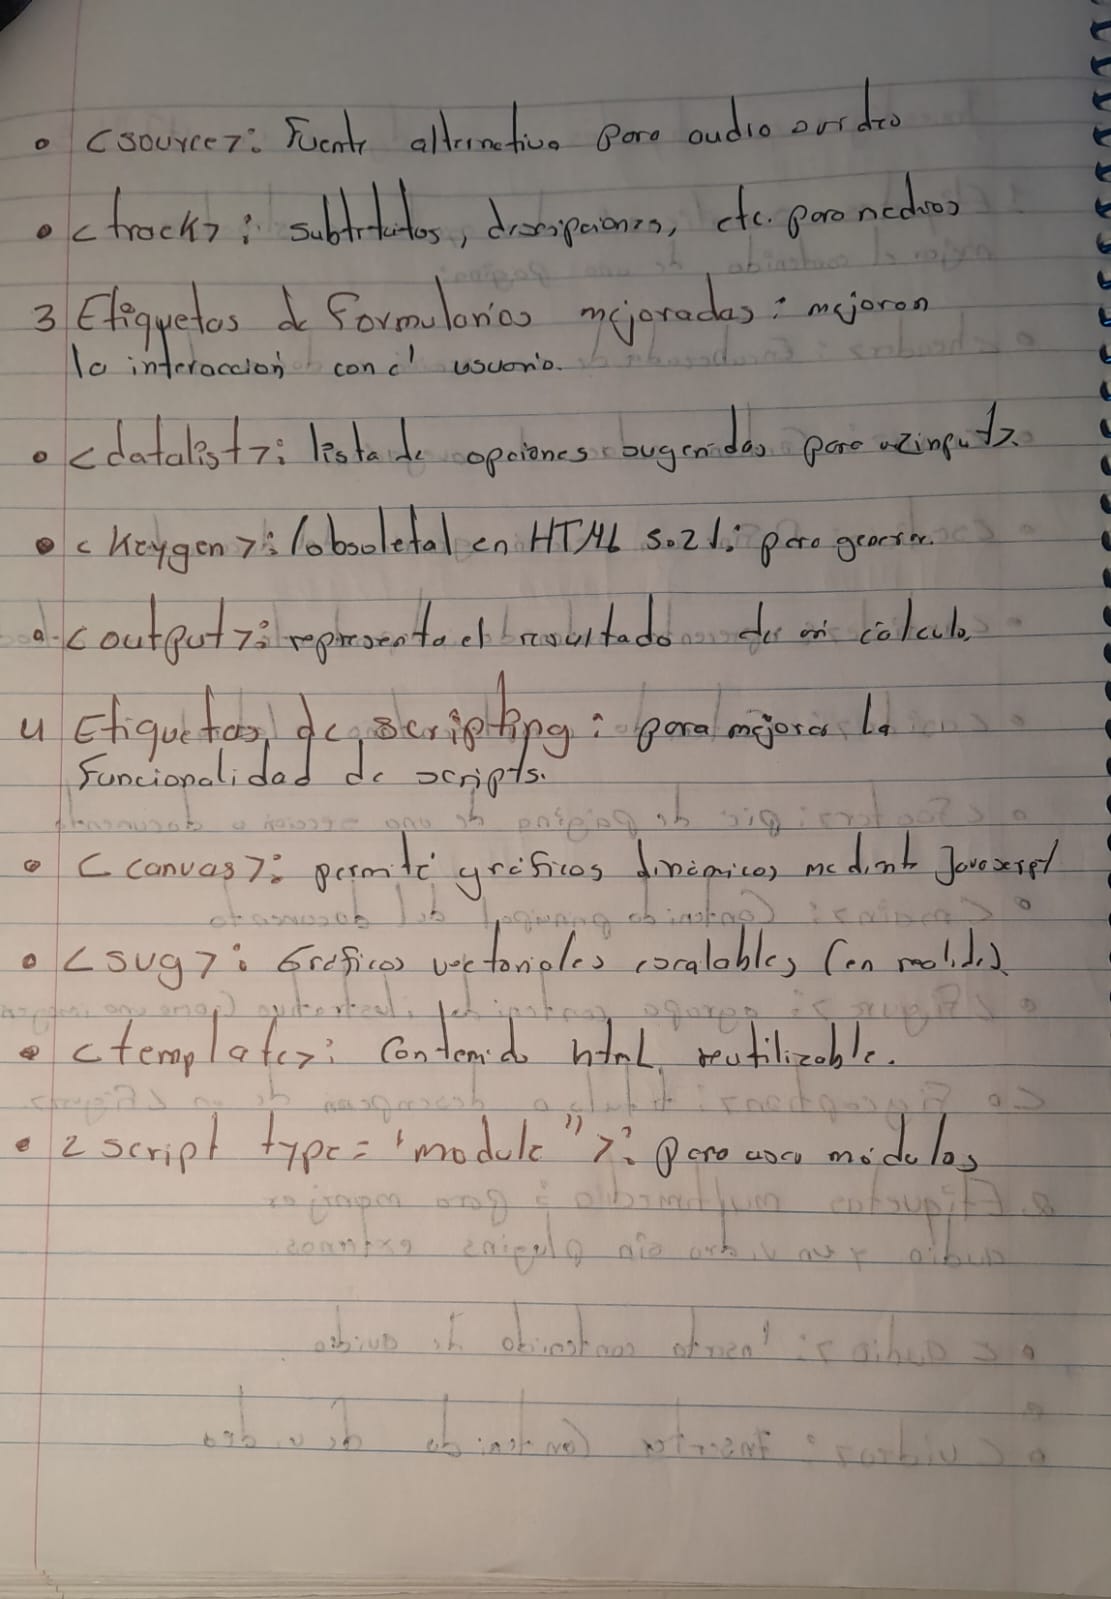 • <source>: Fuente alternativa para audio o video
• <track>: subtitulos, descripciones, etc. para medios
3 Etiquetas de formularios mejoradas: mejoran
la interacción con el usuario.
• <datalist>: lista de opciones sugeridas para <input>.
• <Keygen>: (obsoleta) en HTML 5.2): para generar.
• <output>: representa el resultado de un cálculo.
4 Etiquetas de scripting: para mejorar la
Funcionalidad de scripts.
• <canvas>: permite gráficos dinámicos mediant Javascript
• <svg>: Gráficos vectoriales escalables (en realidad)
• <template>: Contenido html reutilizable.
• <script type='module">: para usar módulos